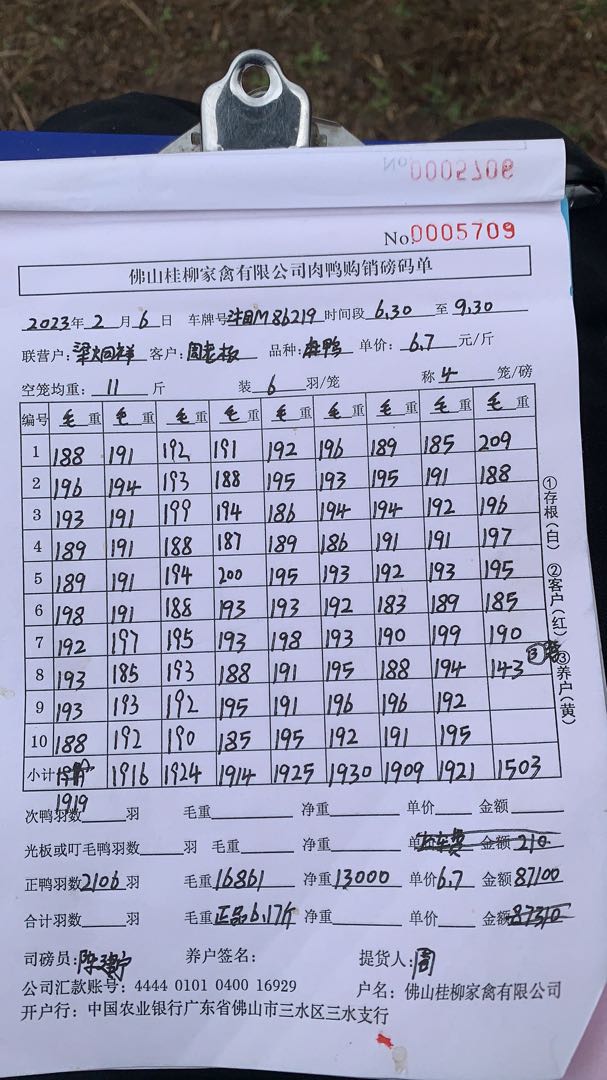 No 0005706
No 0005709
佛山桂柳家禽有限公司肉鸭购销磅码单
2023年 2 月 6 日 车牌号 M86219 时间段 6,30 至 9,30
联营户: 梁 祥 客户: 周老板 品种: 鸭 单价: 6,7 元/斤
空笼均重: 11 斤 装 6 羽/笼 称 4 笼/磅
编号 毛重 毛重 毛重 毛重 毛重 毛重 毛重 毛重 毛重
1 188 191 192 191 192 196 189 185 209
2 196 194 193 188 195 193 195 191 188
3 193 191 199 194 186 194 194 192 196
4 189 191 188 187 189 186 191 191 197
5 189 191 194 200 195 193 192 193 195
6 198 191 188 193 193 192 183 189 185
7 192 197 195 193 198 193 190 199 190
8 193 185 193 188 191 195 188 194 143
9 193 193 192 195 191 196 196 192
10 188 192 190 185 195 192 191 195
小计 1916 1924 1914 1925 1930 1909 1921 1503
1919
次鸭羽数 羽 毛重 净重 单价 金额
光板或叮毛鸭羽数 羽 毛重 净重 金额 210
正鸭羽数 2106 羽 毛重 16861 净重 13000 单价 6,7 金额 87100
合计羽数 羽 毛重 正品6,17斤 净重 单价 金额 87310
司磅员: 陈 宁 养户签名: 提货人: 周
公司汇款账号: 4444 0101 0400 16929 户名: 佛山桂柳家禽有限公司
开户行: 中国农业银行广东省佛山市三水区三水支行
①存根(白) ②客户(红) ③养户(黄)